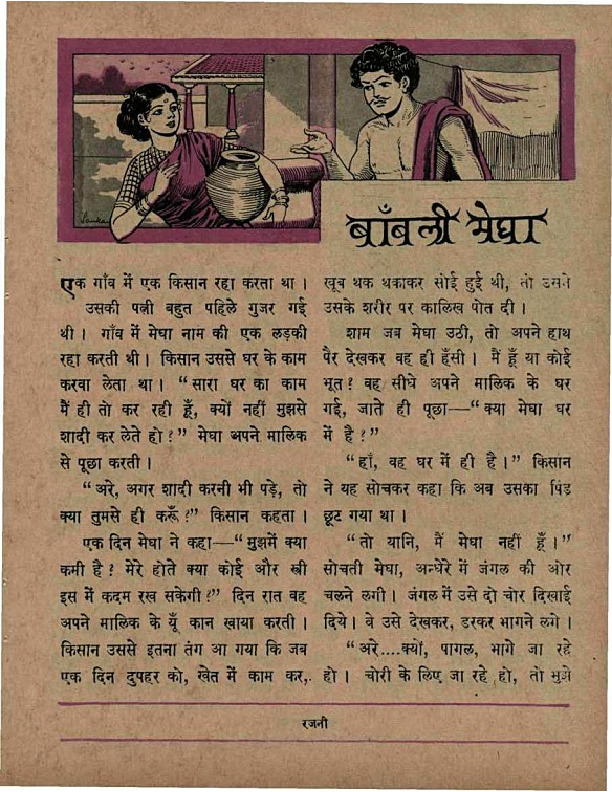 Sankar
बाँबली मेघा
एक गाँव में एक किसान रहा करता था।
उसकी पत्नी बहुत पहिले गुजर गई
थी। गाँव में मेघा नाम की एक लड़की
रहा करती थी। किसान उससे घर के काम
करवा लेता था। "सारा घर का काम
मैं ही तो कर रही हूँ, क्यों नहीं मुझसे
शादी कर लेते हो?" मेघा अपने मालिक
से पूछा करती।
"अरे, अगर शादी करनी भी पड़े, तो
क्या तुमसे ही करूँ?" किसान कहता।
एक दिन मेघा ने कहा—"मुझमें क्या
कमी है? मेरे होते क्या कोई और स्त्री
इस में कदम रख सकेगी?" दिन रात वह
अपने मालिक के यूँ कान खाया करती।
किसान उससे इतना तंग आ गया कि जब
एक दिन दुपहर को, खेत में काम कर,
खूब थक थकाकर सोई हुई थी, तो उसने
उसके शरीर पर कालिख पोत दी।
शाम जब मेघा उठी, तो अपने हाथ
पैर देखकर वह ही हँसी। मैं हूँ या कोई
भूत? वह सीधे अपने मालिक के घर
गई, जाते ही पूछा—"क्या मेघा घर
में है?"
"हाँ, वह घर में ही है।" किसान
ने यह सोचकर कहा कि अब उसका पिंड
छूट गया था।
"तो यानि, मैं मेघा नहीं हूँ।"
सोचती मेघा, अन्धेरे में जंगल की ओर
चलने लगी। जंगल में उसे दो चोर दिखाई
दिये। वे उसे देखकर, डरकर भागने लगे।
"अरे....क्यों, पागल, भागे जा रहे
हो। चोरी के लिए जा रहे हो, तो मुझे
रजनी